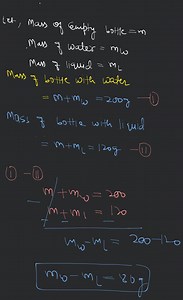 Let, Mass of empty bottle = m
Mass of water = mw
Mass of liquid = mL
Mass of bottle with water
= m + mw = 200g — (I)
Mass of bottle with liquid
= m + mL = 120g — (II)
(I) - (II)
m + mw = 200
- m + mL = 120
mw - mL = 200 - 120
mw - mL = 120g